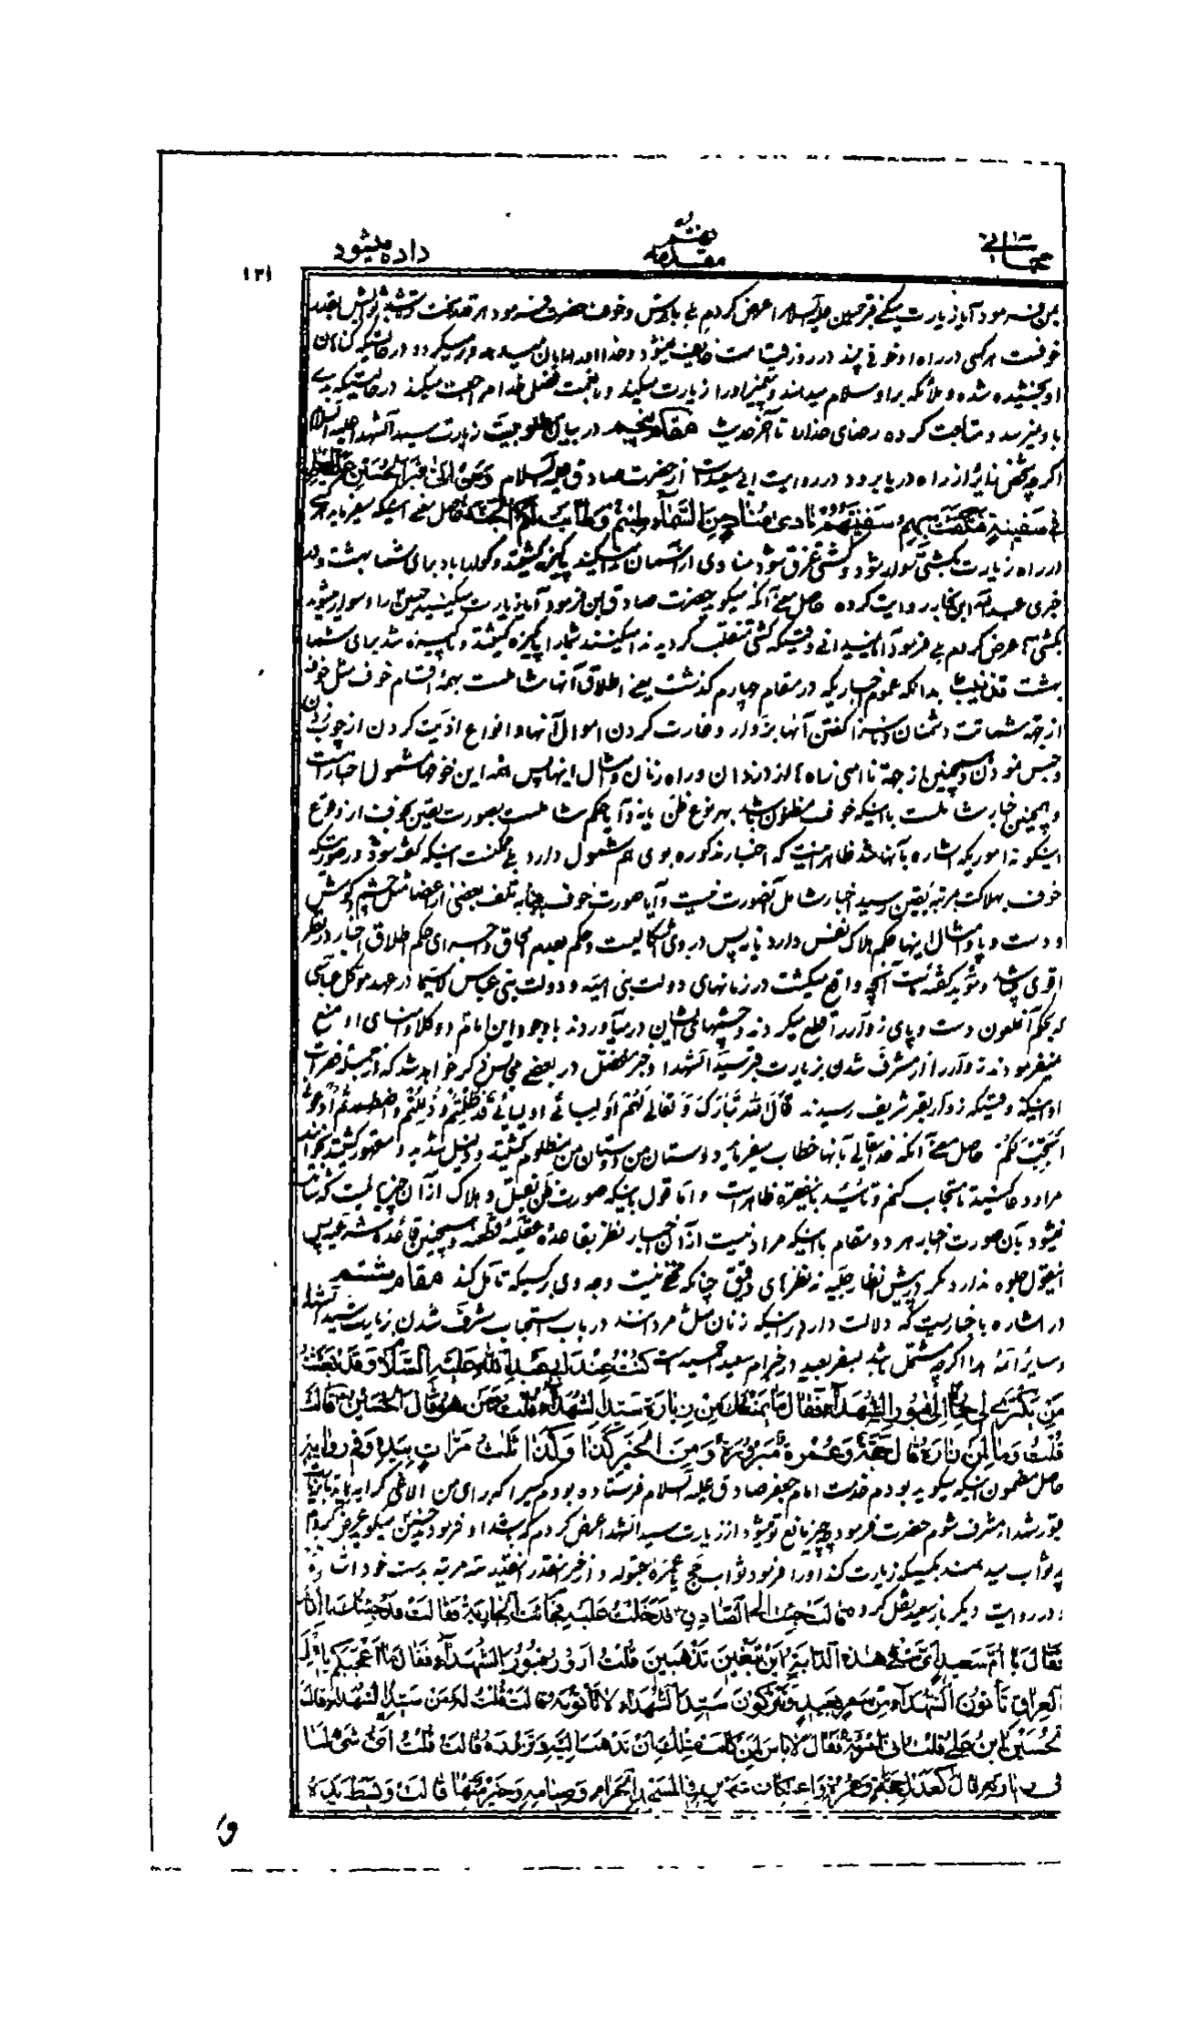 مقدمه
داده میشود
۱۳۱
بمن فرمود آیا زیارت میکنی قبر حسین علیه السلام را عرض کردم بلی با ترس و خوف حضرت فرمود هر قدر سخت تر شد ثوابش بقدر
خوفست هر کس در راه او خوفی چند در روز قیامت
او بخشیده شده و ملائکه بر او سلام میدهند و پیغمبر او را زیارت میکند و بنعمت و فضل خدا مراجعت میکند در حالتیکه بدی
باو نمیرسد و متابعت کرده رضای خدا را تا آخر حدیث مقام پنجم در بیان مطلوبیت زیارت سید الشهدا علیه السلام
اگرچه شخص زائر از راه دریا برود در روایت ابی سعید است از حضرت صادق علیه السلام و من اتی قبر الحسین علیه السلام
فی سفینة فتکفت بهم سفینتهم نادی مناد من السماء طبتم و طابت لکم الجنة حاصل معنی اینکه میفرماید هر که
در راه زیارت بکشتی سوار شود و کشتی غرق شود منادی از آسمان ندا میکند پاکیزه گشتید و گوارا باد برای شما بهشت و در
خبری عبدالله ابن نجار روایت کرده حاصل معنی آنکه میگوید حضرت صادق بمن فرمود آیا زیارت میکنید حسین را و سوار میشوید
بکشتی ها عرض کردم بلی فرمود آیا نمیدانی وقتیکه کشتی منقلب گردید ندا میکنند شما را پاکیزه گشتید و پاکیزه شد برای شما
بهشت تذنیب بدانکه عموم اخباریکه در مقام چهارم گذشت یعنی اطلاق آنها شاملست بهمه اقسام خوف مثل خوف
از جهة شماتت دشمنان و ناسزا گفتن آنها بزوار و غارت کردن اموال آنها و انواع اذیت کردن از چوب زدن
و حبس نمودن و همچنین از جهة ناامنی راه ها از دزدان و راه زنان و امثال اینها پس همه این خوفها مشمول اخبار است
و همچنین اخبار شاملست باینکه خوف مظنون باشد بهر نوع ظن یا نه و آیا حکم شاملست بصورت یقین بخوف از وقوع
اینگونه اموریکه اشاره بآنها شد ظاهر اینست که اخبار مذکوره بوی هم شمول دارد بلی ممکنست اینکه گفته شود در صورتیکه
خوف بهلاکت بمرتبه یقین رسید اخبار شامل آنصورت نیست و آیا صورت خوف بتلف بعضی از اعضا مثل چشم و گوش
و دست و پا و امثال اینها حکم هلاک نفس دارد یا نه پس در وی اشکالیست و حکم بعدم الحاق و اجرای حکم اطلاق اخبار در نظر
اقوی میباشد و مؤید گفته ماست آنچه واقع میگشت در زمانهای دولت بنی امیه و دولت بنی عباس لاسیما در عهد متوکل عباسی
که بحکم آنملعون دست و پای زوار را قطع میکردند و چشمهای ایشان در میآوردند با وجود این امام و وکلا و امنای او منع
نمیفرمودند زوار را از مشرف شدن بزیارت قبر سید الشهدا و خبر مفضل در بعضی مجالس ذکر خواهد شد که از جمله فقرات
او اینکه وقتیکه زوار بقبر شریف رسیدند قال الله تبارک و تعالی لهم اولیائی قد ظلمتم و ذللتم و اضطهدتم ادعونی
استجب لکم حاصل معنی آنکه خدای تعالی بآنها خطاب میفرماید دوستان من دوستان من مظلوم گشتید و ذلیل شدید و مقهور گشتید بخوانید
مرا و دعا کنید تا مستجاب کنم و تأیید باینفقره ظاهر است و اما قول باینکه صورت ظن بقتل و هلاک از آن چیزهائیست که شامل
نمیشود بآن صورت اخبار هر دو مقام باینکه مراد نیست از آن اخبار نظر بقاعده عقلیه قطعیه و همچنین قاعده شرعیه پس
اینقول جلوه ندارد مگر در پیش انظار جلیه نه نظرهای دقیق چنانکه مخفی نیست وجه وی بر کسیکه تأمل کند مقام ششم
در اشاره باخباریست که دلالت دارد بر اینکه زنان مثل مردانند در باب استحباب مشرف شدن بزیارت سید الشهدا
و سایر ائمه هدا اگرچه مشتمل باشد بسفر بعید و در خبر ام سعید احمسیه است کنت عند ابی عبدالله علیه السلام و قد بعثت
من یکتری لی حمارا الی قبور الشهداء فقال ما یمنعک من زیارة سید الشهداء قلت و من هو قال الحسین قالت
قلت و ما لمن زاره قال حجة و عمرة مبرورة و من الخیر کذا و کذا ثلث مرات بیده و فی روایة
حاصل مضمون اینکه میگوید بودم خدمت امام جعفر صادق علیه السلام فرستاده بودم کسیرا که برای من الاغی کرایه نماید تا بزیارت
قبور شهدا مشرف شوم حضرت فرمود چه چیز مانع تو میشود از زیارت سید الشهدا عرض کردم که باشد او فرمود حسین میگوید عرض کردم
چه ثواب میدهند بکسیکه زیارت کند او را فرمود ثواب حج و عمره مقبوله و از خیر اینقدر اینقدر سه مرتبه بدست خود اشاره
و در روایت دیگر باز سعید نقل کرده قالت جئت الی الصادق فدخلت علیه فجائت الجاریة فقالت قد جئتک بالدابة
فقال یا ام سعید ای شیء هذه الدابة این تبغین تذهبین قلت ازور قبور الشهداء فقال ما اعجبکم یا اهل
العراق تأتون الشهداء من سفر بعید و تترکون سید الشهداء لا تأتونه قالت قلت له من سید الشهداء فقال
الحسین ابن علی قلت انی امرأة فقال لا باس لمن کانت مثلک ان تذهب الیه و تزوره قالت قلت ای شیء لنا
فی زیارته قال کعدل حجة و عمرة و اعتکاف شهرین فی المسجد الحرام و صیامها و خیر منها قالت و بسط یده